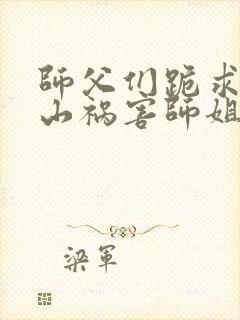 師父们跪求
山祸害師姐
梁軍